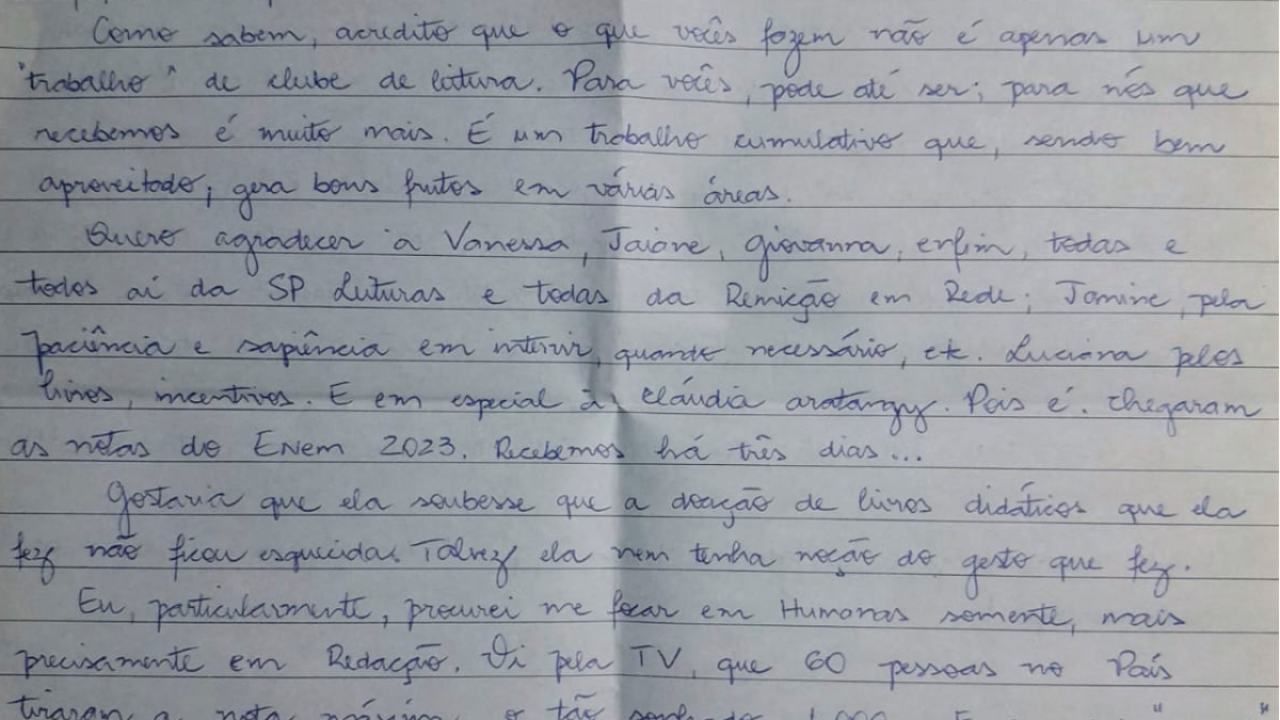 Como sabem, acredito que o que vocês fazem não é apenas um
"trabalho" de clube de leitura. Para vocês, pode até ser; para nós que
recebemos é muito mais. É um trabalho cumulativo que, sendo bem
aproveitado, gera bons frutos em várias áreas.
Quero agradecer a Vanessa, Jaione, Giovanna, enfim, todas e
todos aí da SP Leituras e todas da Remição em Rede; Jamine, pela
paciência e sapiência em intervir, quando necessário, etc. Luciana pelos
livros, incentivos. E em especial à Cláudia aratangy. Pois é. chegaram
as notas do Enem 2023. Recebemos há três dias...
Gostaria que ela soubesse que a doação de livros didáticos que ela
fez não ficou esquecida. Talvez ela nem tenha noção do gesto que fez.
Eu, particularmente, procurei me focar em Humanas somente, mais
precisamente em Redação. Vi pela TV, que 60 pessoas no País
tiraram a nota máxima, o tão sonhado 1.000.